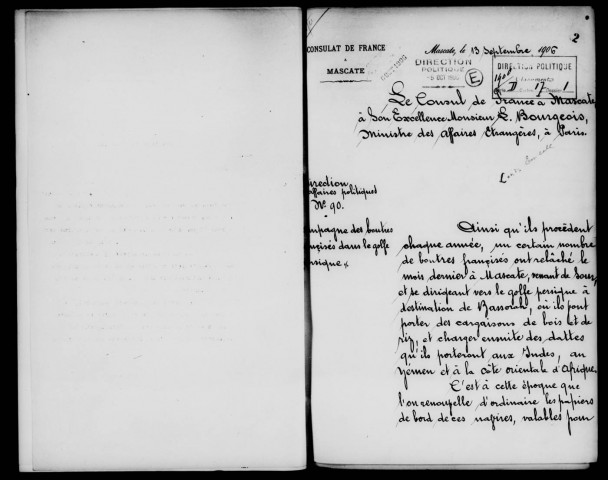 2
CONSULAT DE FRANCE
À
MASCATE
Mascate, le 13 Septembre 1906
DIRECTION
POLITIQUE
OCT 1906
E
DIRECTION POLITIQUE
17 1
Le Consul de France à Mascate
à Son Excellence Monsieur L. Bourgeois,
Ministre des Affaires Etrangères, à Paris.
irection
affaires politiques
Nº 90.
mpagne des boutres
ncisés dans le golfe
rsique
Ainsi qu'ils procèdent
chaque année, un certain nombre
de boutres francisés ont relâché le
mois dernier à Mascate, venant de
et se dirigeant vers le golfe persique à
destination de Bassorah, où ils font
porter des cargaisons de bois et de
riz, et charger ensuite des dattes
qu'ils porteront aux Indes, au
Yémen et à la côte orientale d'Afrique.
C'est à cette époque que
l'on renouvelle d'ordinaire les papiers
de bord de ces navires, valables pour